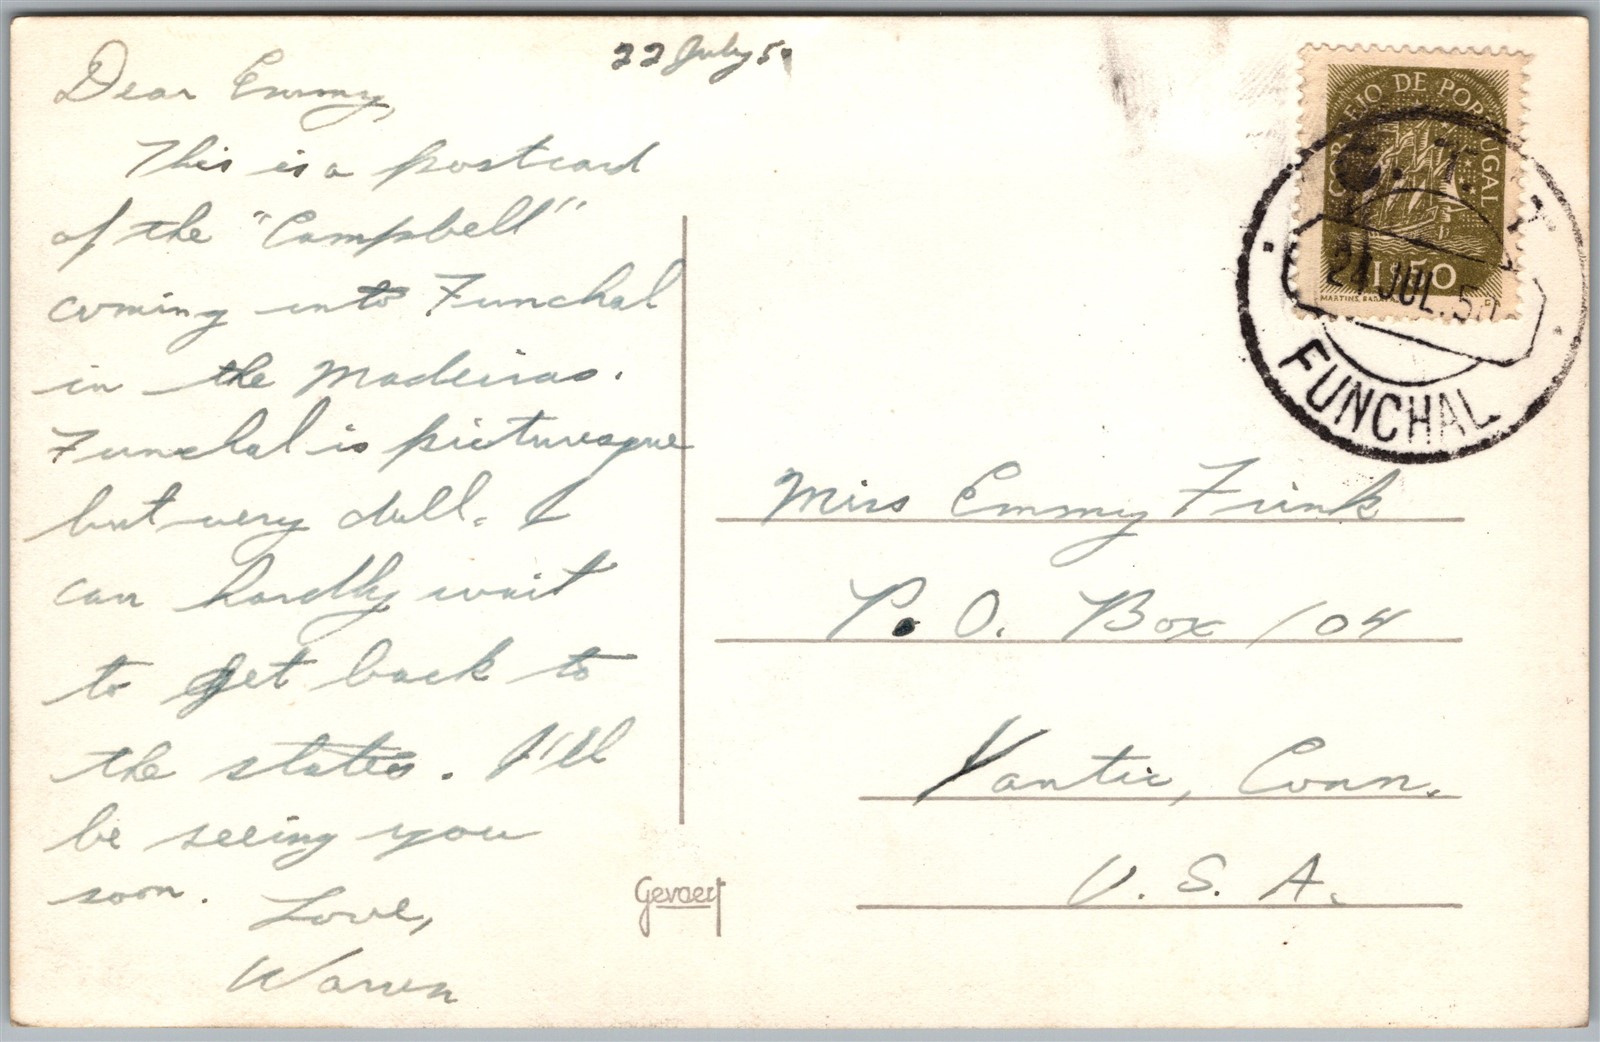 22 July 50
Dear Emmy,
This is a postcard
of the "Campbell"
coming into Funchal
in the Madeiras.
Funchal is picturesque
but very dull. I
can hardly wait
to get back to
the states. I'll
be seeing you
soon. Love,
Warren
Gevaert
CORREIO DE PORTUGAL
1$50
MARTINS BARATA
C. T. T.
24 JUL. 50
FUNCHAL
Miss Emmy Frink
P. O. Box 104
Yantic, Conn.
U. S. A.